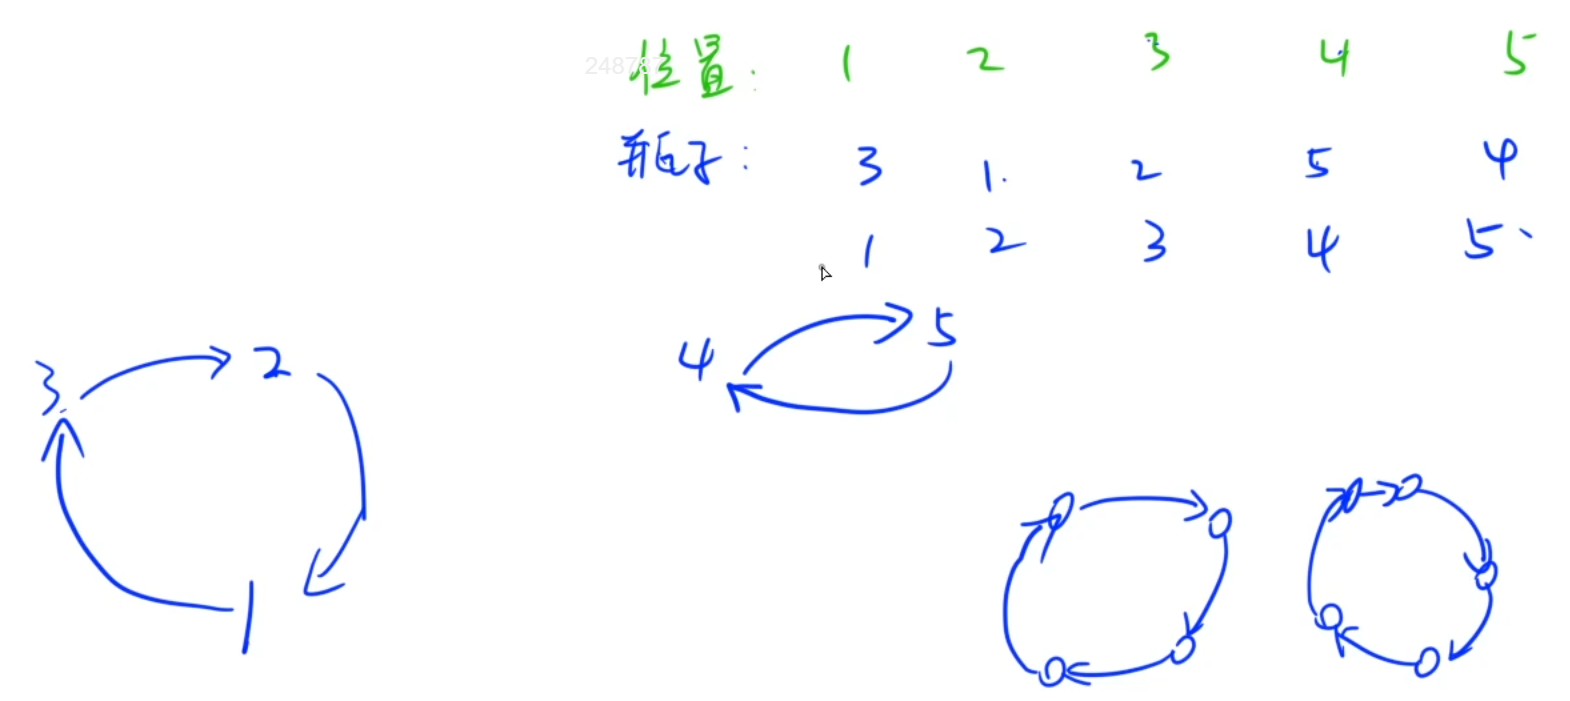 位置: 1 2 3 4 5
248787
瓶子: 3 1. 2 5 4
1 2 3 4 5
4 5
3 2
1